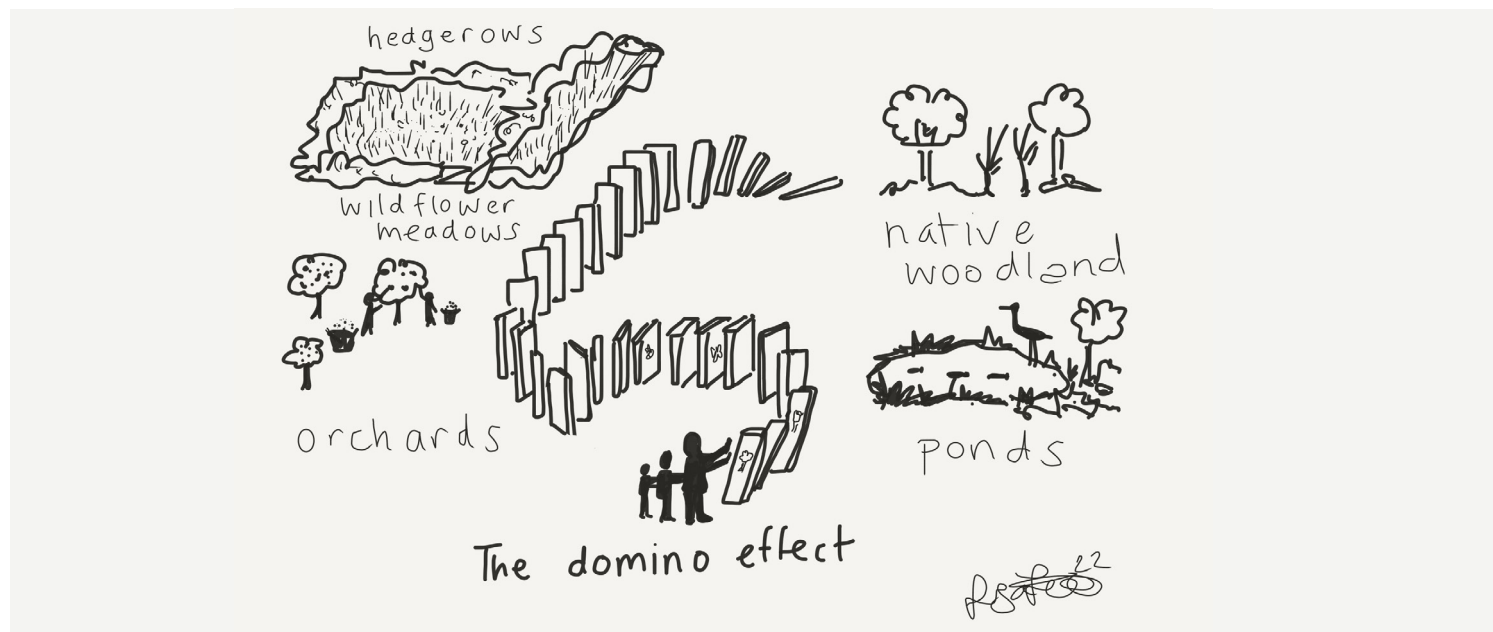 hedgerows
wildflower
meadows
native
woodland
orchards
ponds
The domino effect
22